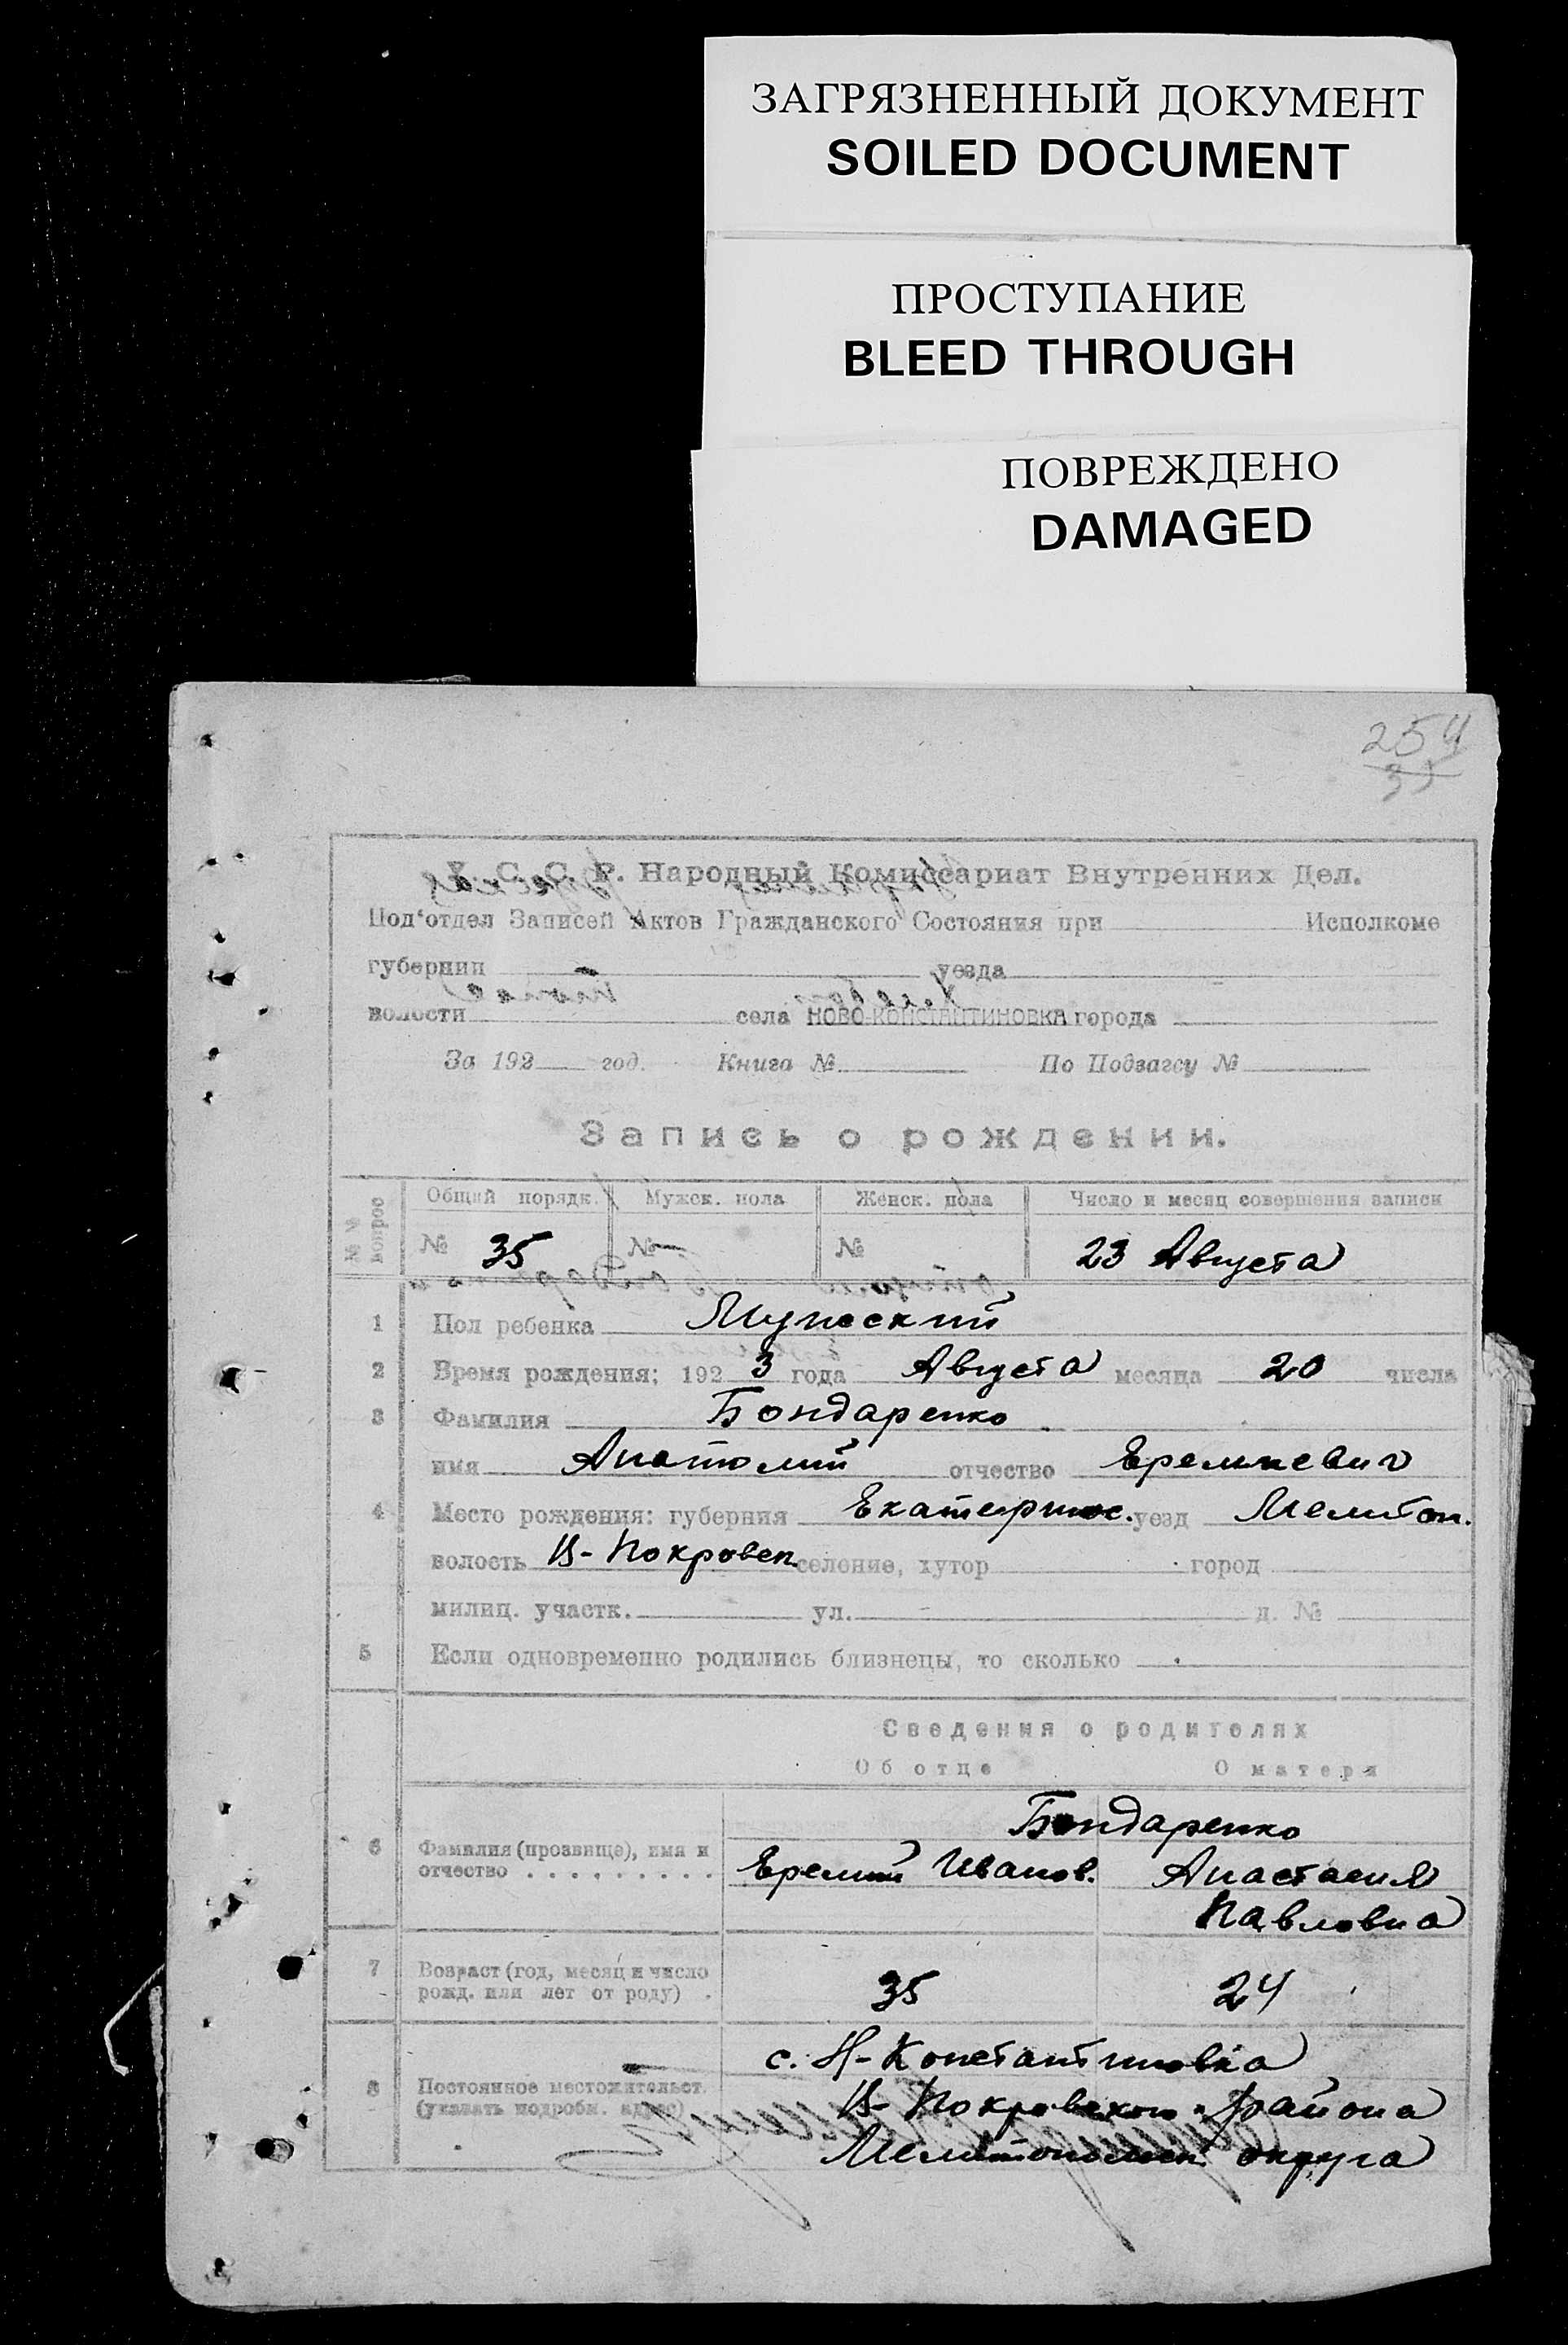 ЗАГРЯЗНЕННЫЙ ДОКУМЕНТ
SOILED DOCUMENT
ПРОСТУПАНИЕ
BLEED THROUGH
ПОВРЕЖДЕНО
DAMAGED
254
У. С. С. Р. Народный Комиссариат Внутренних Дел.
Под'отдел Записей Актов Гражданского Состояния при Исполкоме
губернии уезда
волости села НОВО-КОНСТАНТИНОВКА города
За 192 год. Книга № По Подзагсу №
Запись о рождении.
№№ вопрос Общий порядк. Мужск. пола Женск. пола Число и месяц совершения записи
№ 35 №— № 23 Августа
1 Пол ребенка Мужеский
2 Время рождения; 192 3 года Августа месяца 20 числа
3 Фамилия Бондаренко
имя Анатолий отчество Еремиевич
4 Место рождения: губерния Екатеринос. уезд Мелитоп.
волость В-Покровск. селение, хутор город
милиц. участк. ул. д. №
5 Если одновременно родились близнецы, то сколько
Сведения о родителях
Об отце О матери
Бондаренко
6 Фамилия (прозвище), имя и Еремий Иванов. Анастасия
отчество . . . . . . . . . Павловна
7 Возраст (год, месяц и число 35 24
рожд. или лет от роду) .
с. Н-Константиновка
8 Постоянное местожительст. В-Покровского района
(указать подробн. адрес) Мелитопольск. округа